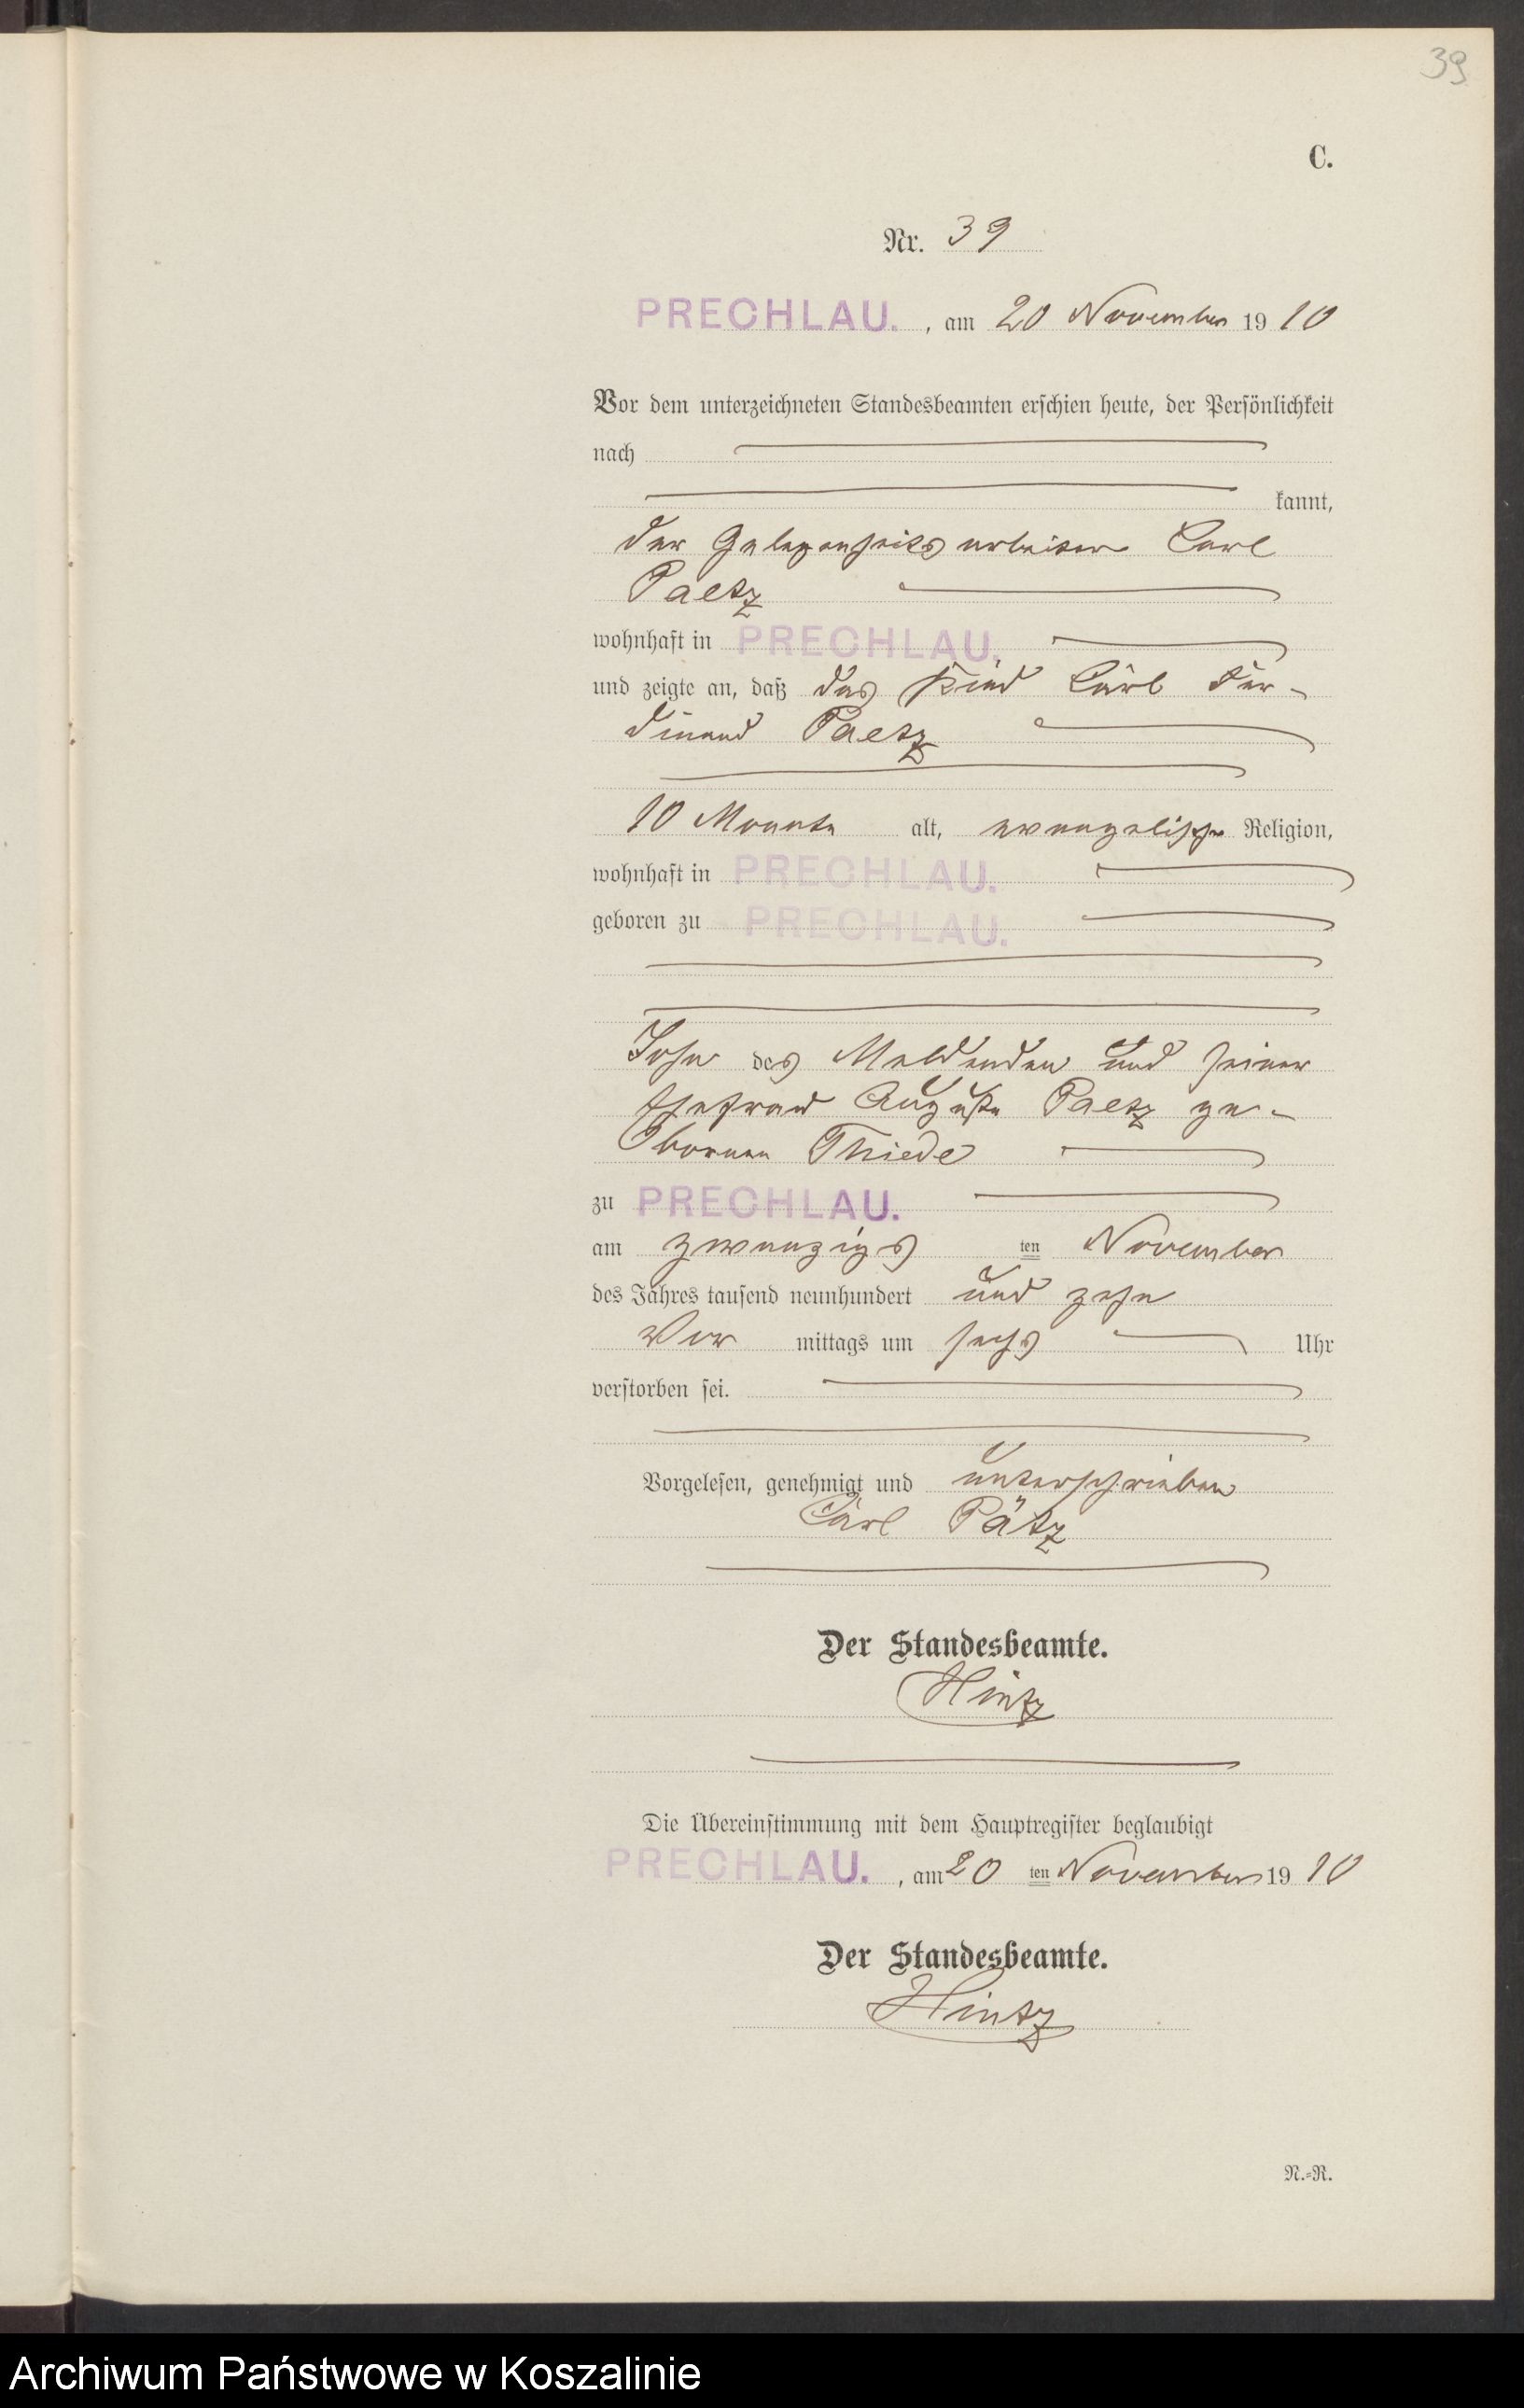 39
C.
Nr. 39
PRECHLAU. , am 20 November 1910
Vor dem unterzeichneten Standesbeamten erschien heute, der Persönlichkeit
nach
kannt,
der Gelegenheitsarbeiter Carl
Paetz
wohnhaft in PRECHLAU.
und zeigte an, daß das Kind Carl Fer-
dinand Paetz
10 Monate alt, evangelischer Religion,
wohnhaft in PRECHLAU.
geboren zu PRECHLAU.
Sohn des Meldenden und seiner
Ehefrau Auguste Paetz ge-
bornen Thiede
zu PRECHLAU.
am zwanzigs ten November
des Jahres tausend neunhundert und zehn
Vor mittags um sechs Uhr
verstorben sei.
Vorgelesen, genehmigt und unterschrieben
Carl Pätz
Der Standesbeamte.
Hintz
Die Übereinstimmung mit dem Hauptregister beglaubigt
PRECHLAU. , am 20 ten November 1910
Der Standesbeamte.
Hintz
N.=R.
Archiwum Państwowe w Koszalinie